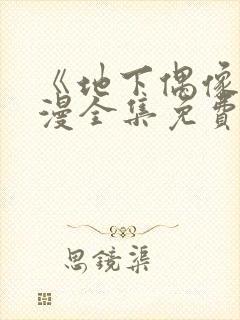 《地下偶像
漫全集免費
思鏡渠